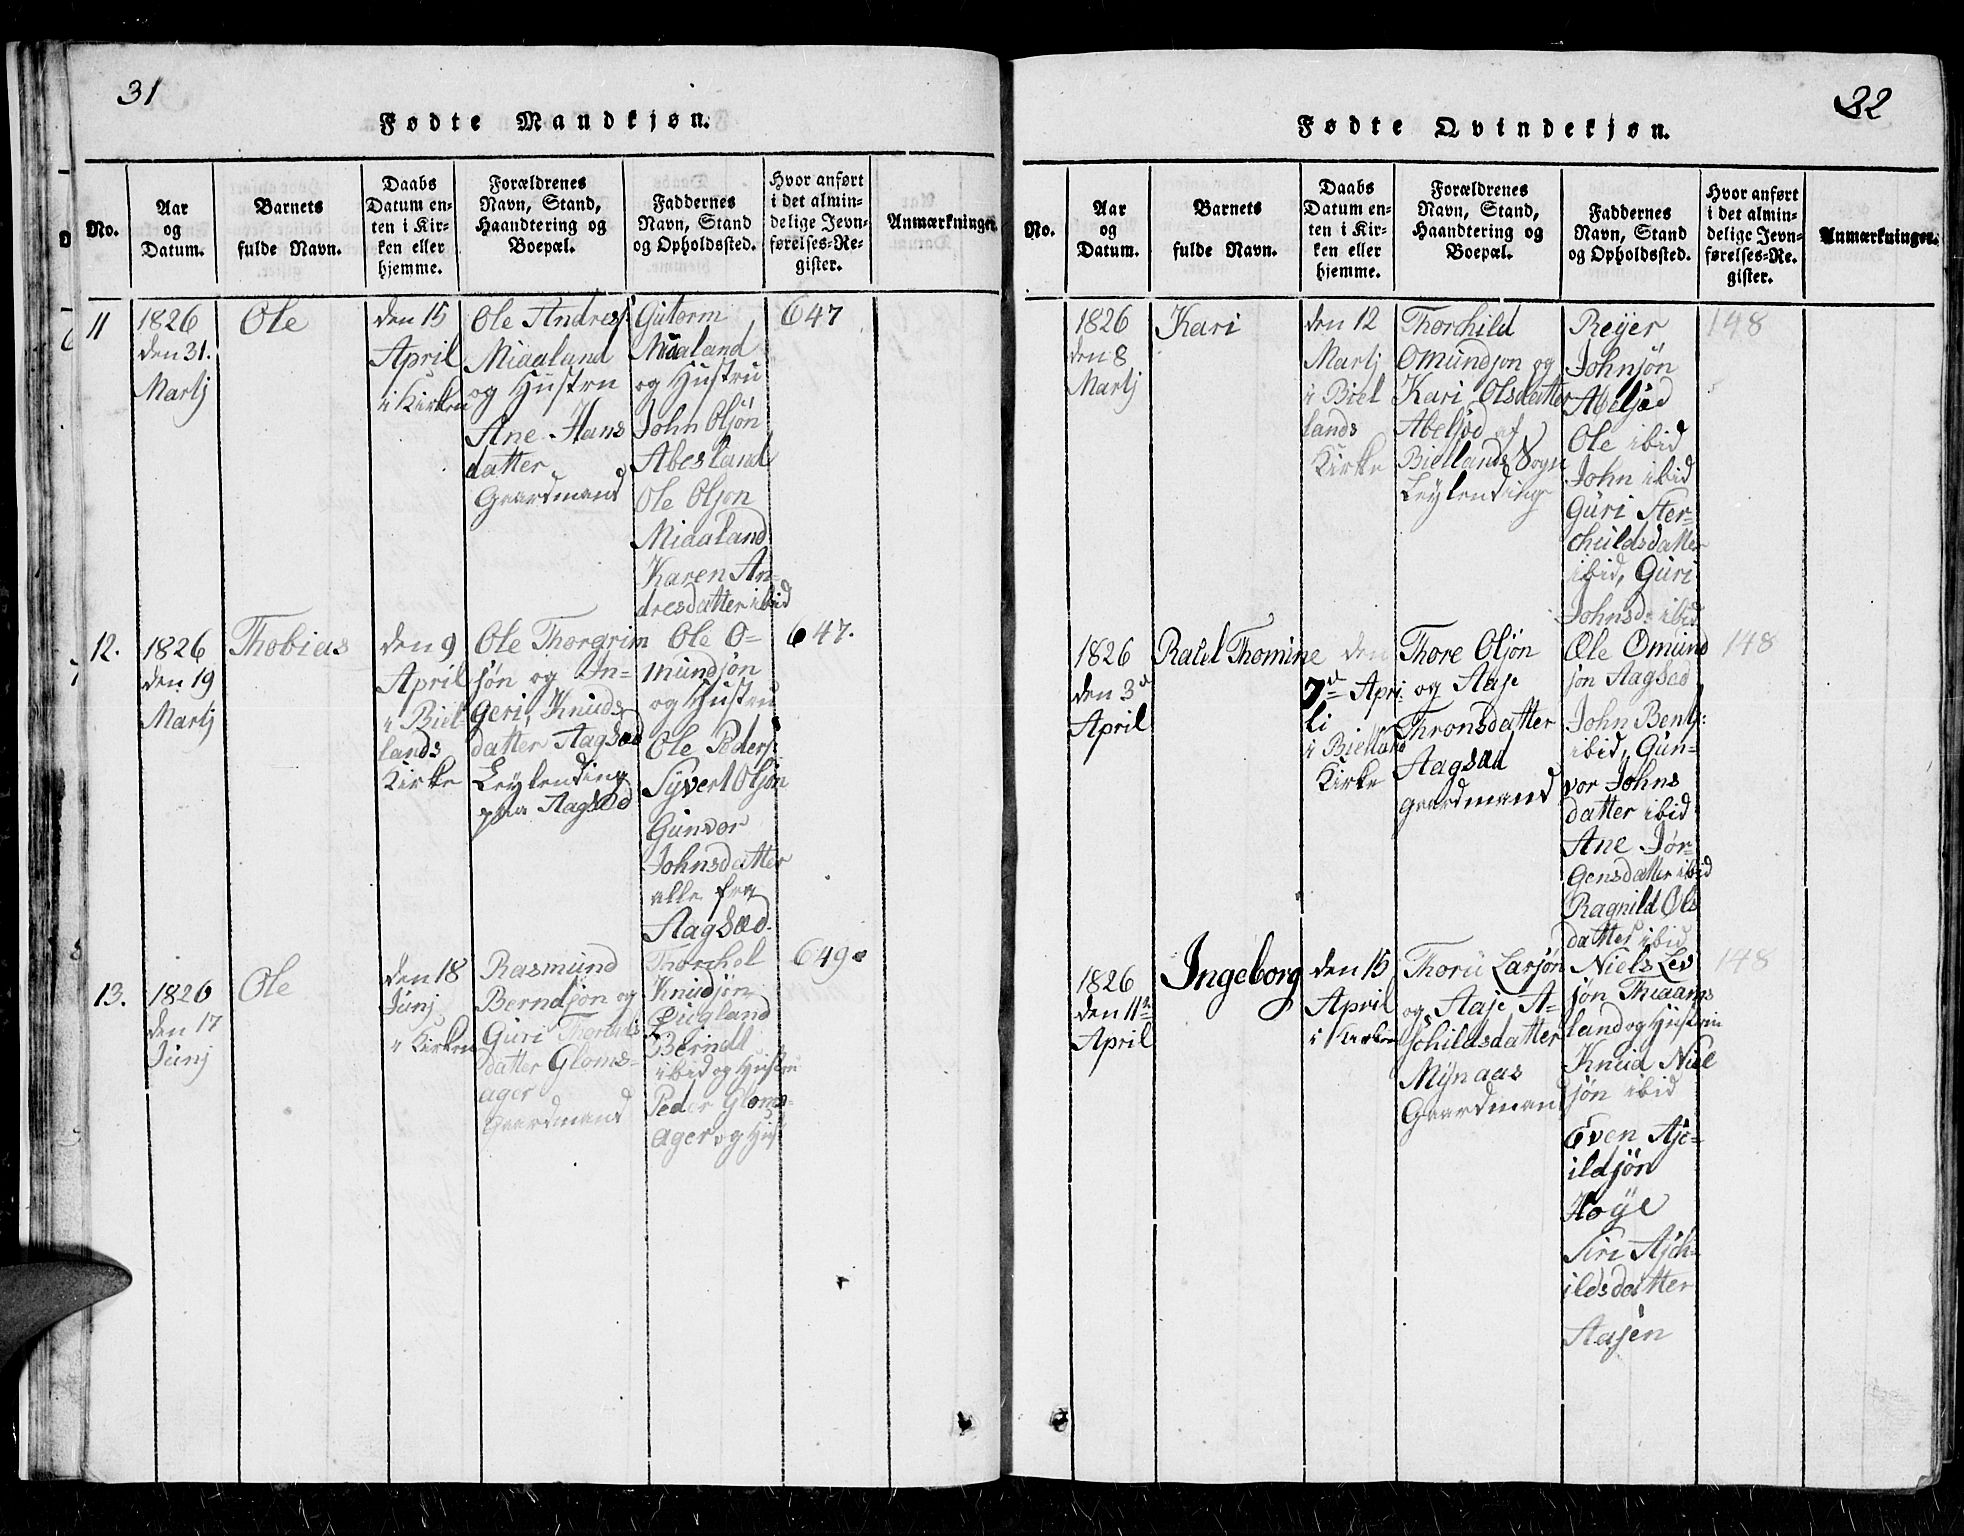 31
Fødte Mandkjøn.
No.
Aar
og
Datum.
Barnets
fulde Navn.
Daabs
Datum en-
ten i Kir-
ken eller
hjemme.
Forældrenes
Navn, Stand,
Haandtering og
Boepæl.
Faddernes
Navn, Stand
og Opholdssted.
Hvor anført
i det almin-
delige Jevn-
førelses-Re-
gister.
Anmærkninger.
11
1826
den 31.
Martj
Ole
den 15
April
i Kirken
Ole Andres
Midaland
og Hustru
Ane Hans
datter
Gaardmand
Gutorm
og Hustru
John Olsøn
Abesland
Ole Olson
Midaland
Karen An-
dresdatter ibid
647
12.
1826
den 19
Martj
Thobias
den 9
April
i Biel
lands
Kirke
Ole Thorgrim
søn og In-
geri, Knuds
datter Aagsæd
Leylending
paa Aagsæd
Ole O-
mundsøn
og Hustru
Ole Peders:
Syvert Olsøn
Gunvor
Johnsdatter
alle fra
Aagsæd.
647.
13.
1826
den 17
Junj
Ole
den 18
Junj
i Kirken
Rasmund
Berndsøn og
Guri
datter Gloms-
ager
Gaardmand
Thorchel
Knudsøn
Berndt
ibid og Hustru
Peder Gloms-
ager og Hus
649
32
Fødte Qvindekjøn.
No.
Aar
og
Datum.
Barnets
fulde Navn.
Daabs
Datum en-
ten i Kir-
ken eller
hjemme.
Forældrenes
Navn, Stand,
Haandtering og
Boepæl.
Faddernes
Navn, Stand
og Opholdssted.
Hvor anført
i det almin-
delige Jevn-
førelses-Re-
gister.
Anmærkninger.
1826
den 8
Martj
Kari
den 12
Martj
i Biel
lands
Kirke
Thorchild
Omundson og
Kari Olsdatter
Abelsød af
Biellands Sogn
Leylending
Reyer
Johnsøn
Abelsæd
Ole ibid
John ibid
Guri Ster-
childsdatter
ibid, Guri
Johnsd: ibid
148
1826
den 3d
April
Rakel Thomine
den
7d Apri
li
i Bielland
Kirke
Thore Olsøn
og Aase
Thronsdatter
Aagsæd
gaardmand
Ole Omund
søn Aagsæd
John Bents:
ibid, Gun-
vor Johns
datter ibid
Ane Jør-
gensdatter ibid
Ragnild Ols
datter ibid
148
1826
den 11te
April
Ingeborg
den 15
April
i Kirken
Thoru Larsøn
og Aase A-
schildsdatter
Mynaas
Gaardmand
Niels Lev
søn Thiaams
land og Hustru
Knud Niel
søn ibid
Even Asc-
ildsøn
Høye
Siri Asch-
ildsdatter
Aasen
148